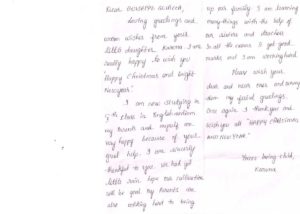 Dear GIUSEPPE
Loving greetings and
warm wishes from your
little daughter Karuna. I am
really happy to wish you
Happy Christmas and bright
Newyear.
I am now studying in
5th class in English medium
my Parents and myself are
very happy because of your
great help. I am sincerely
thankful to you. We had got
little rain, hope our cultivation
will be good. My Parents are
also working hard to bring
up our family. I am learning
many things with the help of
our sisters and teachers.
In all the exams I get good
marks and I am working hard.
Please wish your
dear and near ones and convey
them my festal greetings.
Once again I thank you and
wish you all "HAPPY CHRISTMAS
AND NEW YEAR"
Yours loving child,
Karuna